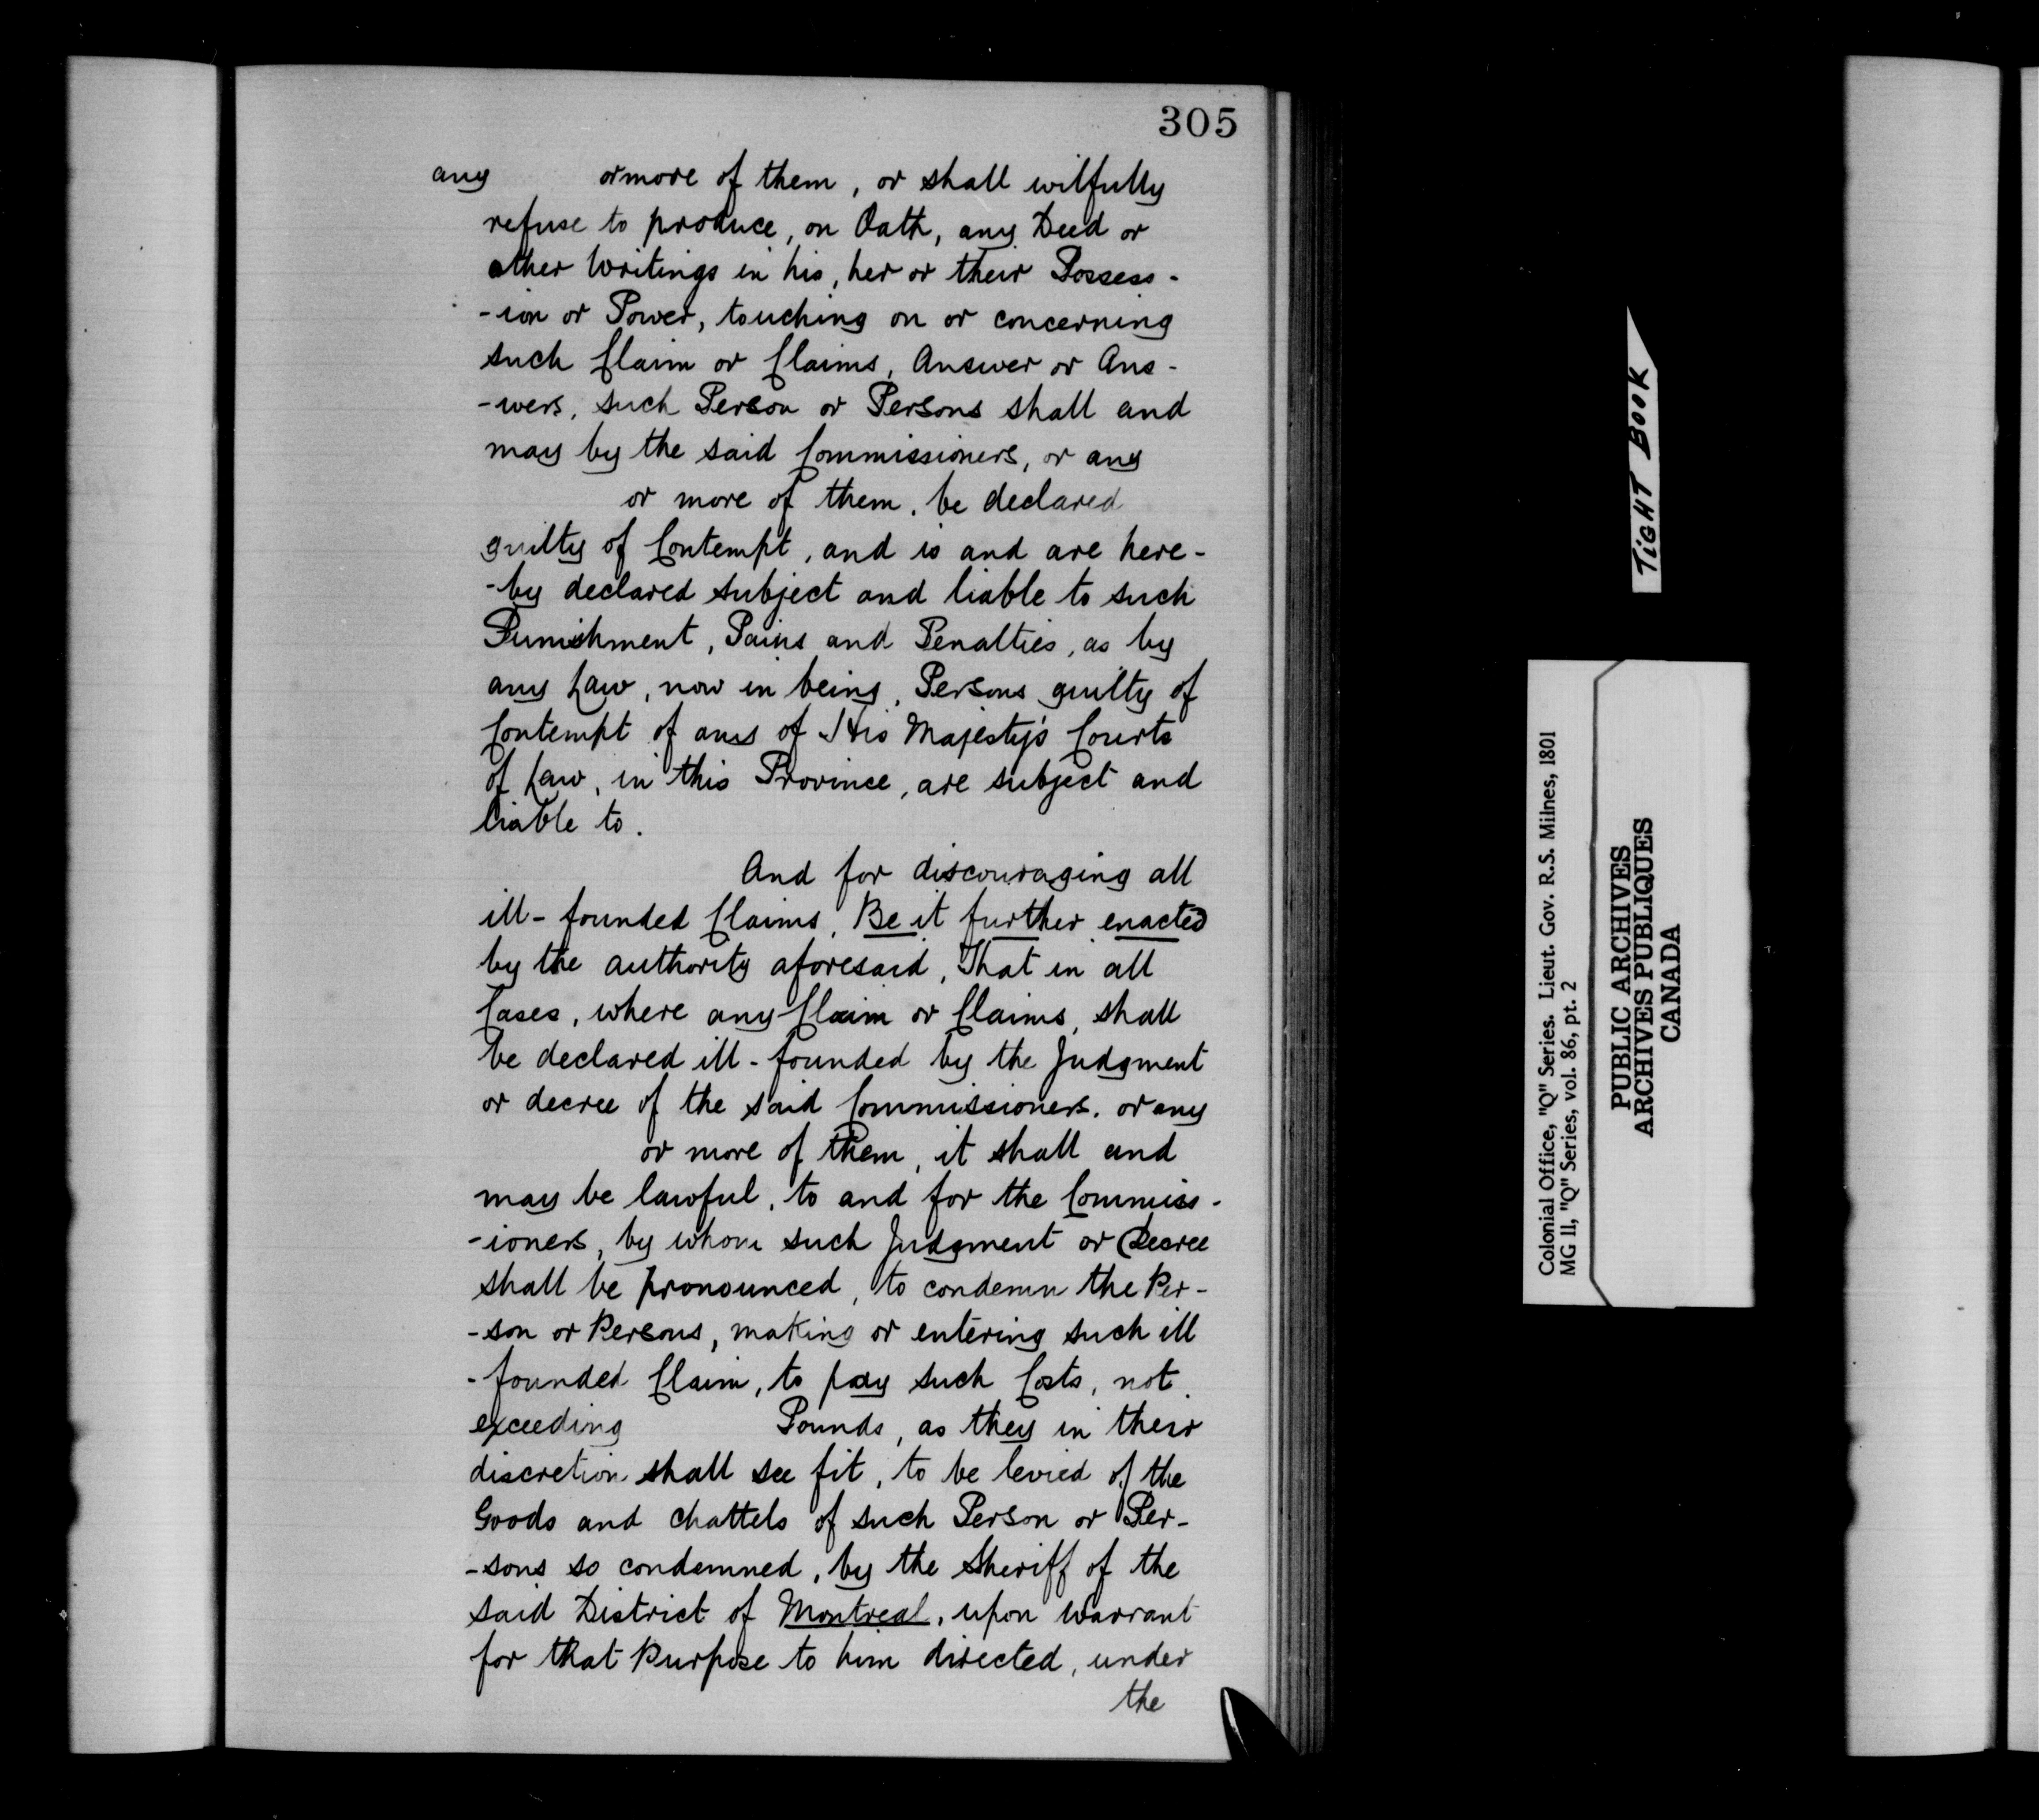 305
any ormore of them, or shall wilfully
refuse to produce, on Oath, any Deed or
other Writings in his, her or their Possess-
-ion or Power, touching on or concerning
such Claim or Claims, Answer or Ans-
-wers, such Person or Persons shall and
may by the said Commissioners, or any
or more of them, be declared
guilty of Contempt, and is and are here-
-by declared subject and liable to such
Punishment, Pains and Penalties, as by
any Law, now in being, Persons guilty of
Contempt of any of His Majesty's Courts
of Law, in this Province, are subject and
liable to.
And for discouraging all
ill-founded Claims, Be it further enacted
by the authority aforesaid, That in all
Cases, where any Claim or Claims, shall
be declared ill-founded by the Judgment
or decree of the said Commissioners, or any
or more of them, it shall and
may be lawful, to and for the Commiss-
-ioners, by whom such Judgment or Decree
shall be pronounced, to condemn the Per-
-son or Persons, making or entering such ill
-founded Claim, to pay such Costs, not
exceeding Pounds, as they in their
discretion shall see fit, to be levied of the
Goods and Chattels of such Person or Per-
-sons so condemned, by the Sheriff of the
said District of Montreal, upon Warrant
for that Purpose to him directed, under
the
TIGHT BOOK
Colonial Office, "Q" Series. Lieut. Gov. R.S. Milnes, 1801
MG 11, "Q" Series, vol. 86, pt. 2
PUBLIC ARCHIVES
ARCHIVES PUBLIQUES
CANADA